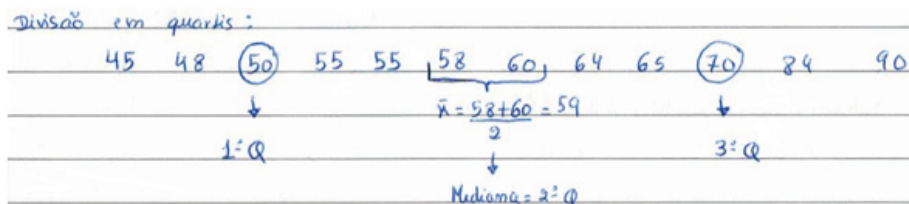 Divisão em quartis :
45 48 50 55 55 58 60 64 65 70 84 90
x̄ = 58+60 = 59
2
1º Q
3º Q
Mediana = 2º Q